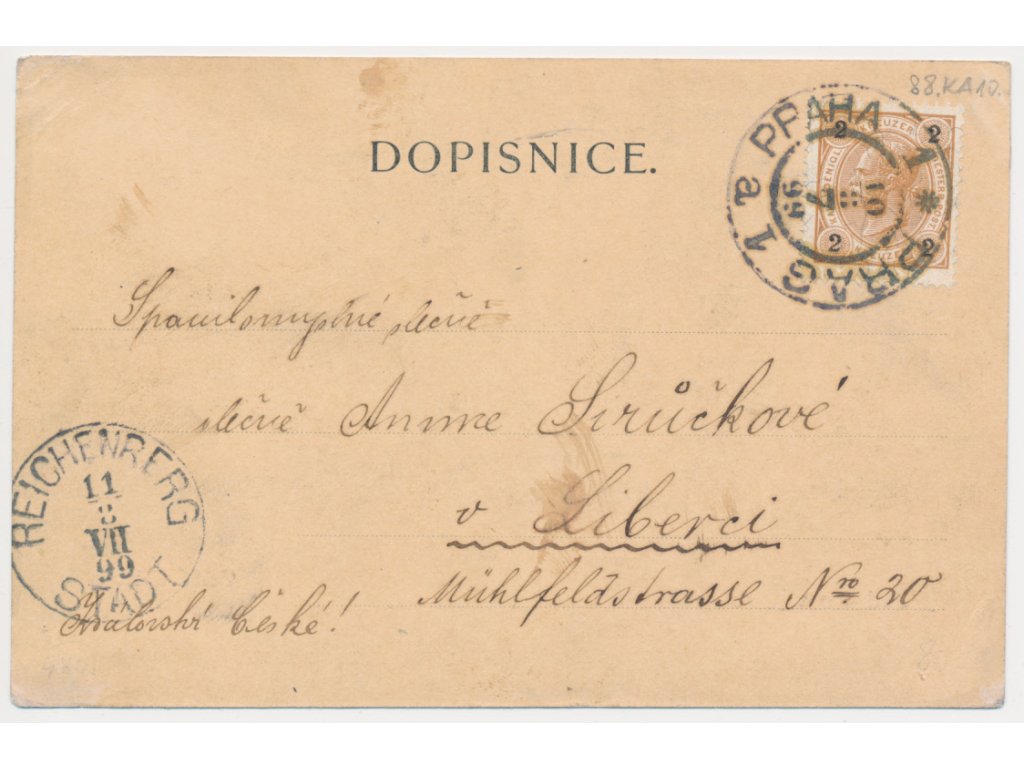 88.KA10.
DOPISNICE.
PRAHA 1 * PRAG 1 a
10 7 99
2 2
2 2
slečně
slečně Anme Sirůčkové
v Liberci
Mühlfeldstrasse Nro 20
Království České!
REICHENBERG
11
8
VII
99
STADT